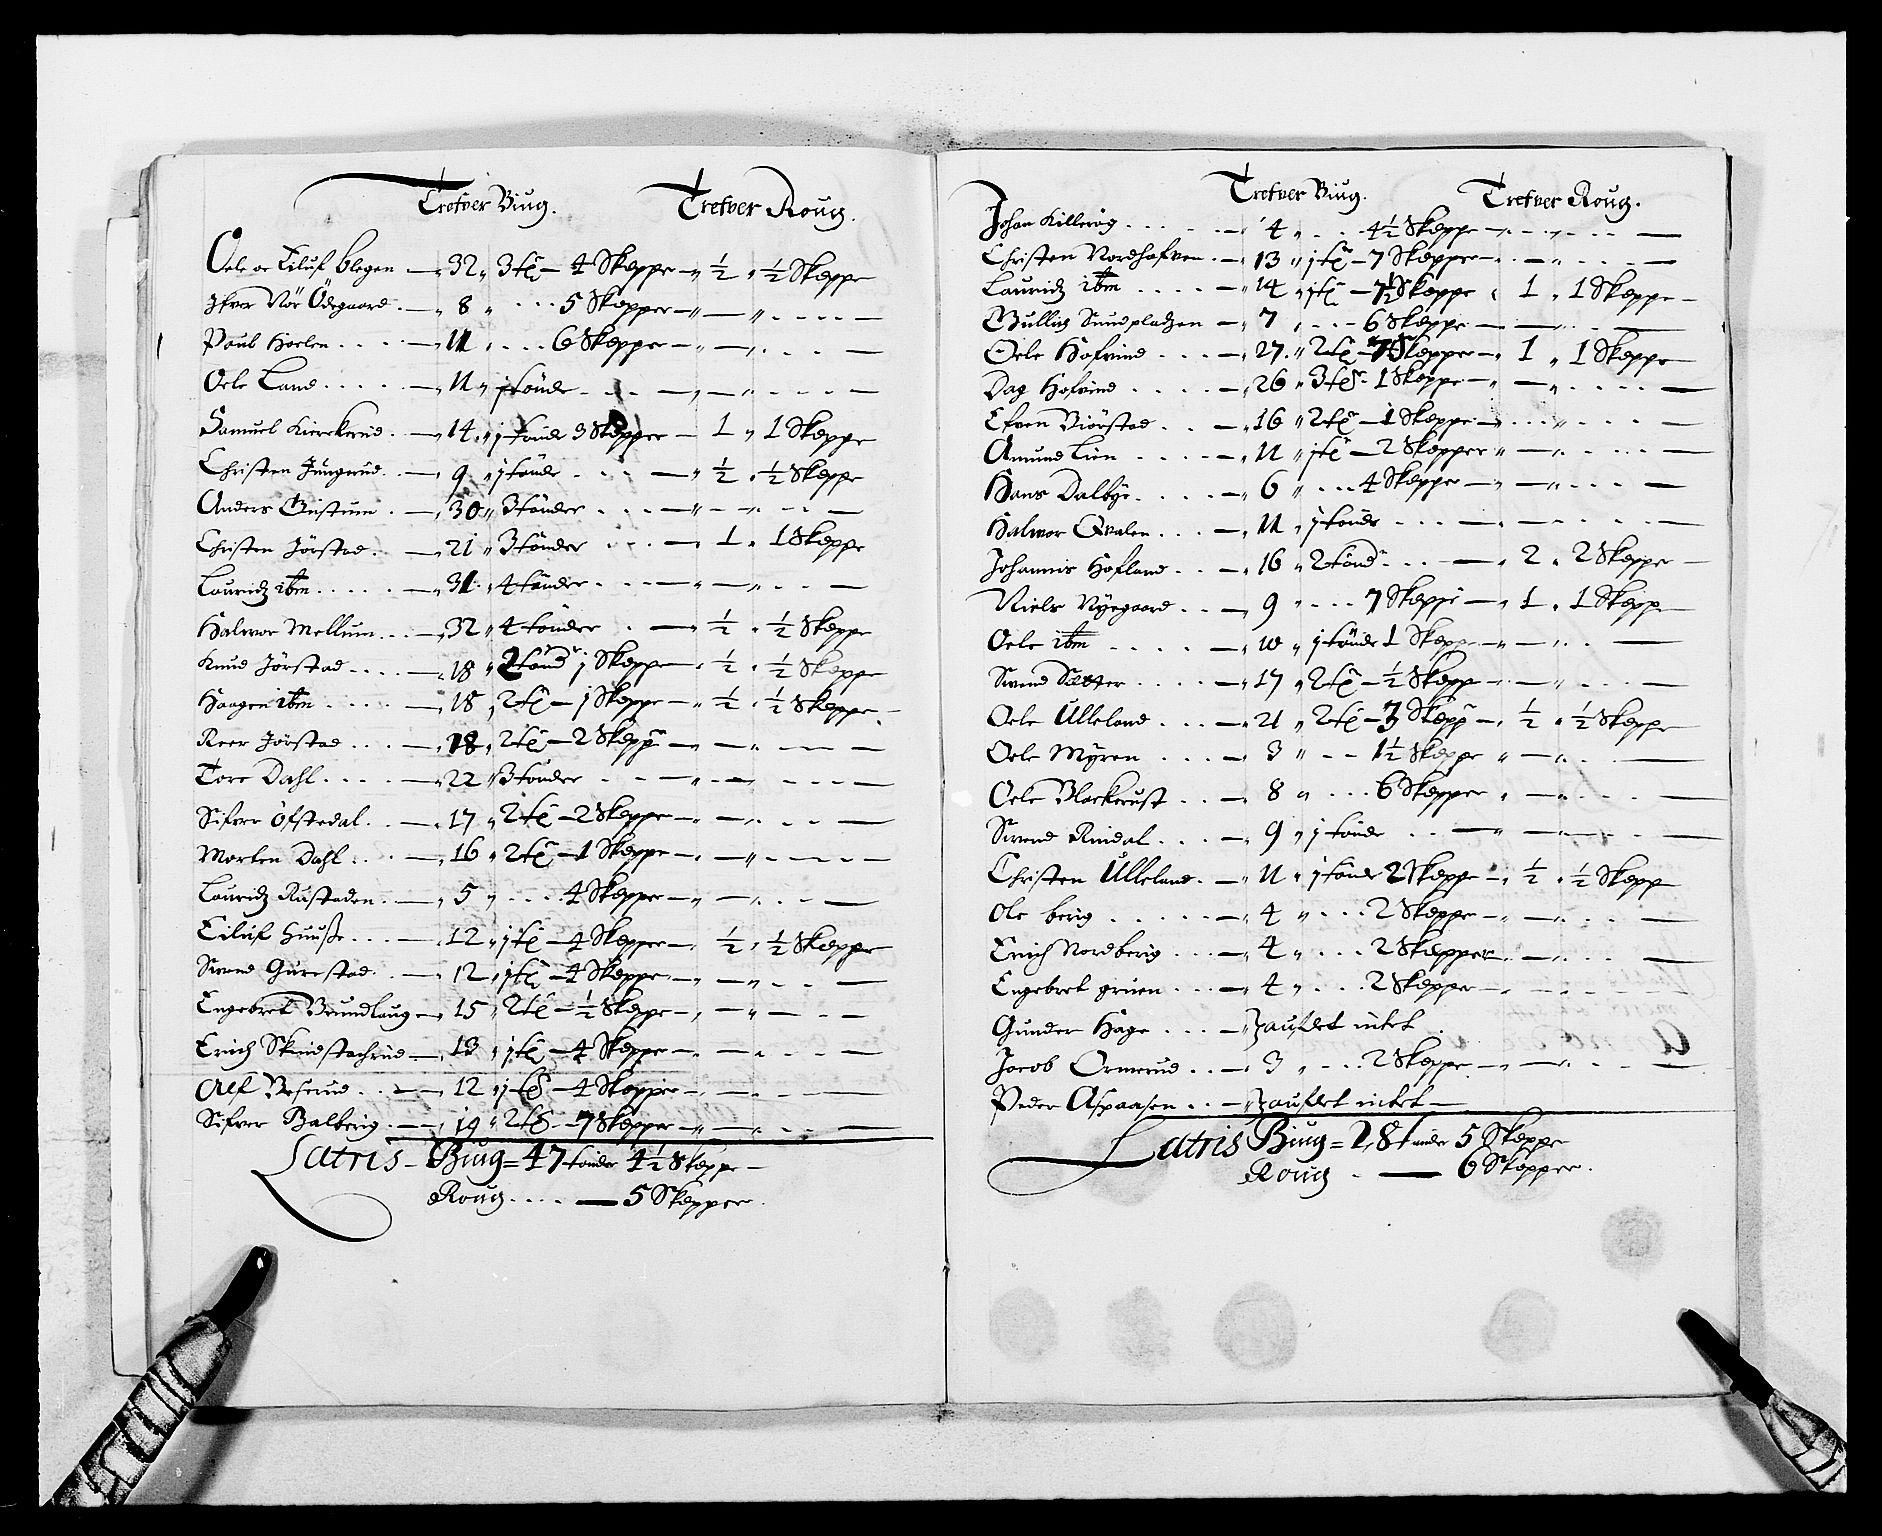 Tretver Biug. Tretver Roug.
Oele oc Eiluf blegen — 32 „ 3 tr — 4 Skepper — „ ½ „ ½ Skeppe
Ifver Nör Ödegaard — 8 „ 5 Skepper — „ — „
Poul Hoelen — 11 „ 6 Skepper — „ — „
Oele Land — 11 „ j tönde „ — „
Samuel Kierckerud — 14 „ j tönde 3 Skepper — 1 „ 1 Skeppe
Christen Jungerud — 9 „ j tönde — „ ½ „ ½ Skeppe
Anders — 30 „ 3 tönder — „ — „
Christen Jörstad — 21 „ 3 tönder — 1 „ 1 Skeppe
Lauridz ibm — 31 „ 4 tönder — „ — „
Halvor Mellum — 32 „ 4 tönder — „ ½ „ ½ Skeppe
Knud Jörstad — 18 „ 2 tönd j Skeppe — „ ½ „ ½ Skeppe
Haagen ibm — 18 „ 2 tr — j Skeppe — „ ½ „ ½ Skeppe
Roer Jörstad — 18 „ 2 tr — 2 Skepp — „ — „
Tore Dahl — 22 „ 3 tönder — „ — „
Sifver Öfstedal — 17 „ 2 tr — 2 Skeppe — „ — „
Morten Dahl — 16 „ 2 tr — 1 Skeppe — „ — „
Lauridz Rustaden — 5 „ 4 Skepper — „ — „
Eiluf Huuße — 12 „ j tr — 4 Skepper — „ ½ „ ½ Skeppe
Svend Gurestad — 12 „ j tr — 4 Skepper — „ — „
Engebret Brundlaug — 15 „ 2 tr — ½ Skepe — „ — „
Erich — 13 „ j tr — 4 Skeppe — „ — „
Alf — 12 „ j tr — 4 Skepper — „ — „
Sifver Balberig — 19 „ 2 tr — 7 Skepper — „ — „
Latris — Biug = 47 tönder 4½ Skeppe —
Roug — 5 Skepper.
Tretver Biug. Tretver Roug.
Johan Killerög — 4 „ 4½ Skeppe — „
Christen Nordhofven — 13 „ j tr — 7 Skepper — „
Lauridz ibm — 14 „ j tr — 7½ Skeppe „ 1 „ 1 Skeppe —
Sundpladzen — 7 „ 6 Skeppe — „
Oele Hofvind — 27 „ 2 tr — 7 Skepper — „ 1 „ 1 Skeppe
Dag Hofvind — 26 „ 3 tr — 1 Skeppe — „ — „
Efven Biörstad — 16 „ 2 tr — 1 Skeppe — „
Amund Lien — 11 „ j tr — 2 Skepper „ — „
Hans Dalbye — 6 „ 4 Skeppe — „ — „
Halvor Qvalen — 11 „ j tönde — „
Johannis Hofland — 16 „ 2 tönd — „ 2 „ 2 Skeppe —
Niels Nyegaard — 9 „ 7 Skeppe — „ 1 „ 1 Skepp
Oele ibm — 10 „ j tönde 1 Skepp — „ — „
Svend Sætter — 17 „ 2 tr — ½ Skepp — „
Oele Ulleland — 21 „ 2 tr — 3 Skepp — „ ½ „ ½ Skeppe
Oele Myren — 3 „ 1½ Skeppe „ — „
Oele Blackerust — 8 „ 6 Skepper „ — „
Svend Rindal — 9 „ j tönde — „ — „
Christen Ulleland — 11 „ j tönde 2 Skeppe — „ ½ „ ½ Skepp
Ole berig — 4 „ 2 Skeppe — „ — „
Erich Nordberig — 4 „ 2 Skepper — „ — „
Engebret gruen — 4 „ 2 Skepper — „
Gunder Hage — „ auflet intet
Jacob Ormerud — 3 „ 2 Skeppe — „ — „
Peder Aspaasen — „ auflet intet —
Latris Biug = 28 tönder 5 Skeppe
Roug — 6 Skepper.